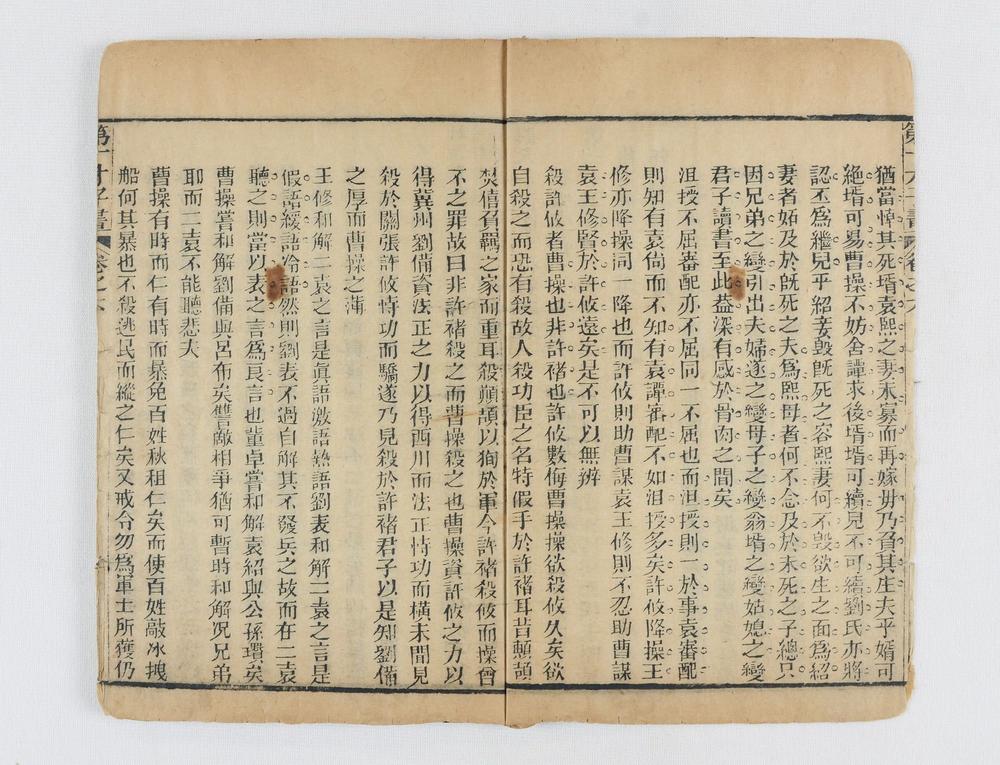 第一才子書 卷之六
猶當悼其死壻袁熙之妻未寡而再嫁毋乃負其生夫乎婿可
絶壻可易曹操不妨舍譚求後壻壻可續見不可續劉氏亦將
認丕為繼兒乎紹妾毀旣死之容熙妻何不毀欲生之面為紹
妻者妬及於旣死之夫為熙母者何不念及於未死之子總只
因兄弟之變引出夫婦遂之變母子之變翁壻之變姑媳之變
君子讀書至此益深有感於骨肉之間矣
沮授不屈審配亦不屈同一不屈也而沮授則一於事袁審配
則知有袁尚而不知有袁譚審配不如沮授多矣許攸降操王
修亦降操詞一降也而許攸則助曹謀袁王修則不忍助曹謀
袁王修賢於許攸遠矣是不可以無辨
殺許攸者曹操也非許褚也許攸數侮曹操操欲殺攸久矣欲
自殺之而恐有殺故人殺功臣之名特假手於許褚耳昔顛頡
焚僖負羈之家而重耳殺顛頡以狥於軍今許褚殺攸而操曾
不之罪故曰非許褚殺之而曹操殺之也曹操資許攸之力以
得冀州劉備資法正之力以得西川而法正恃功而橫未聞見
殺於關張許攸恃功而驕遂乃見殺於許褚君子以是知劉備
之厚而曹操之薄
王修和解二袁之言是眞語激語熱語劉表和解二袁之言是
假語緩語冷語然則劉表不過自解其不發兵之故而在二袁
聽之則當以表之言為良言也董卓嘗和解袁紹與公孫瓚矣
曹操嘗和解劉備與呂布矣讐敵相爭猶可暫時和解况兄弟
耶而二袁不能聽悲夫
曹操有時而仁有時而暴免百姓秋租仁矣而使百姓敲冰拽
船何其暴也不殺逃民而縱之仁矣又戒令勿為軍士所獲仍
第一才子書 卷之六